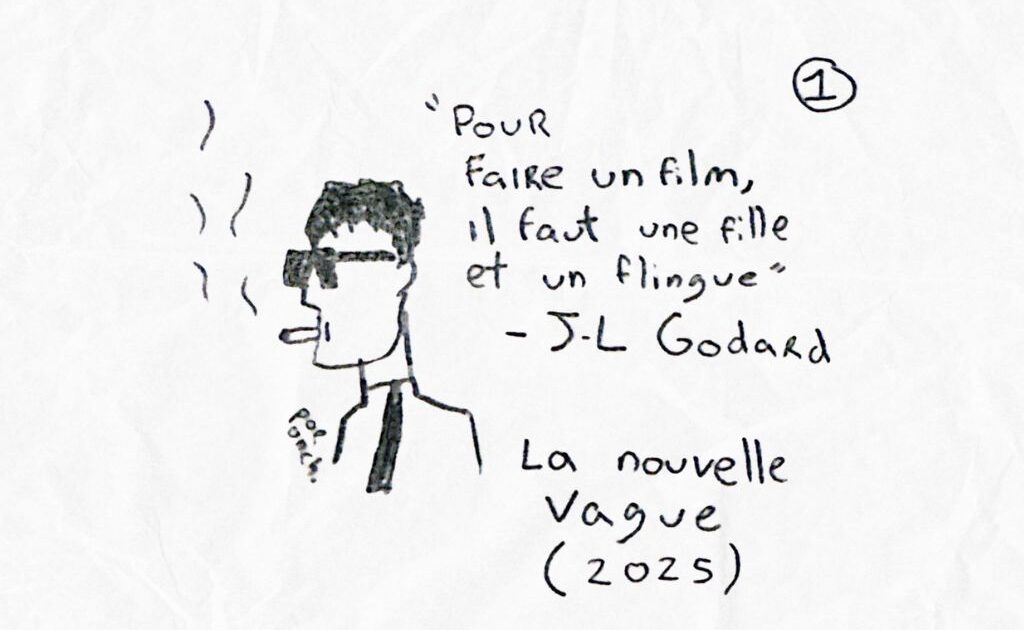 1
"POUR
Faire un film,
il faut une fille
et un flingue"
- J-L Godard
La nouvelle
Vague
(2025)